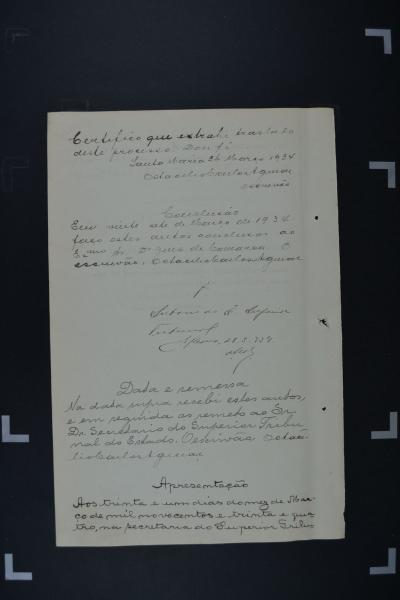 Certifico que extrahi traslado
deste processo. Dou fé.
Santa Maria 26 Março 1934
Octacilio Carlos Aguiar
escrivão
Conclusão
Em vinte e de Março de 1934
faço estes autos conclusos ao
Exmo Sr. Dr Juiz de Comarca. O
escrivão, Octacilio Carlos Aguiar
Subam ao
Tribunal
28.3.934
Data e remessa
Na data supra recebi estes autos,
e em seguida os remeto ao Sr.
Dr. Secretario do Superior Tribu
nal do Estado. O escrivão Octaci
lio Carlos Aguiar
Apresentação
Aos trinta e um dias do mez de Mar
ço de mil novecentos e trinta e qua
tro, na secretaria do Superior Tribu